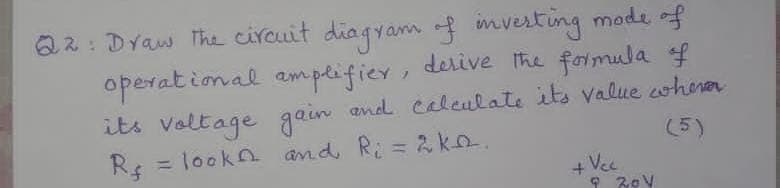 Q2: Draw The circuit diagram of inverting mode of
operational amplifier, derive the formula of
its voltage gain and calculate its value when
(5)
Rf = 100kΩ and Ri = 2kΩ.
+ Vcc
20V